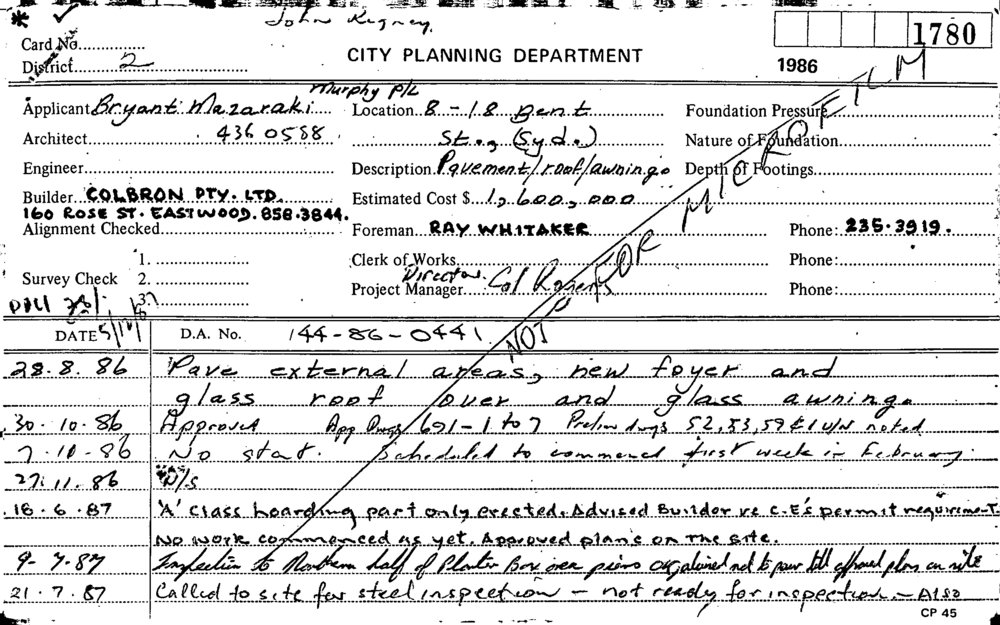 John Kegney
1780
Card No.
District 2
CITY PLANNING DEPARTMENT
1986
Murphy P/L
Applicant Bryant Mazaraki
Location 8-18 Bent
Foundation Pressure
Architect 436 0588
St., (Syd.)
Nature of Foundation
Engineer
Description Pavement/roof/awning.
Depth of Footings
Builder COLBRON PTY. LTD.
Estimated Cost $ 1,600,000
160 ROSE ST. EASTWOOD. 858.3844.
Alignment Checked
Foreman RAY WHITAKER
Phone: 235.3919.
1.
Clerk of Works
Phone:
Survey Check 2.
Director
Project Manager Col
Phone:
3.
NOT FOR MICROFILM
DATE
D.A. No. 144-86-0441
28.8.86 Pave external areas, new foyer and
glass roof over and glass awning.
30.10.86 Approved App Dwgs 691-1 to 7 Prelim dwgs 52,53,59 & noted
7.10.86 No start. Scheduled to commence first week in February.
27.11.86 N/S
18.6.87 'A' Class hoarding part only erected. Advised Builder re C.E's permit requirement.
No work commenced as yet. Approved plan's on the site.
9-7.87 Inspection to Northern half of Planter Box over piers not to pour till approved plan on site
21.7.87 Called to site for steel inspection - not ready for inspection - Also
CP 45